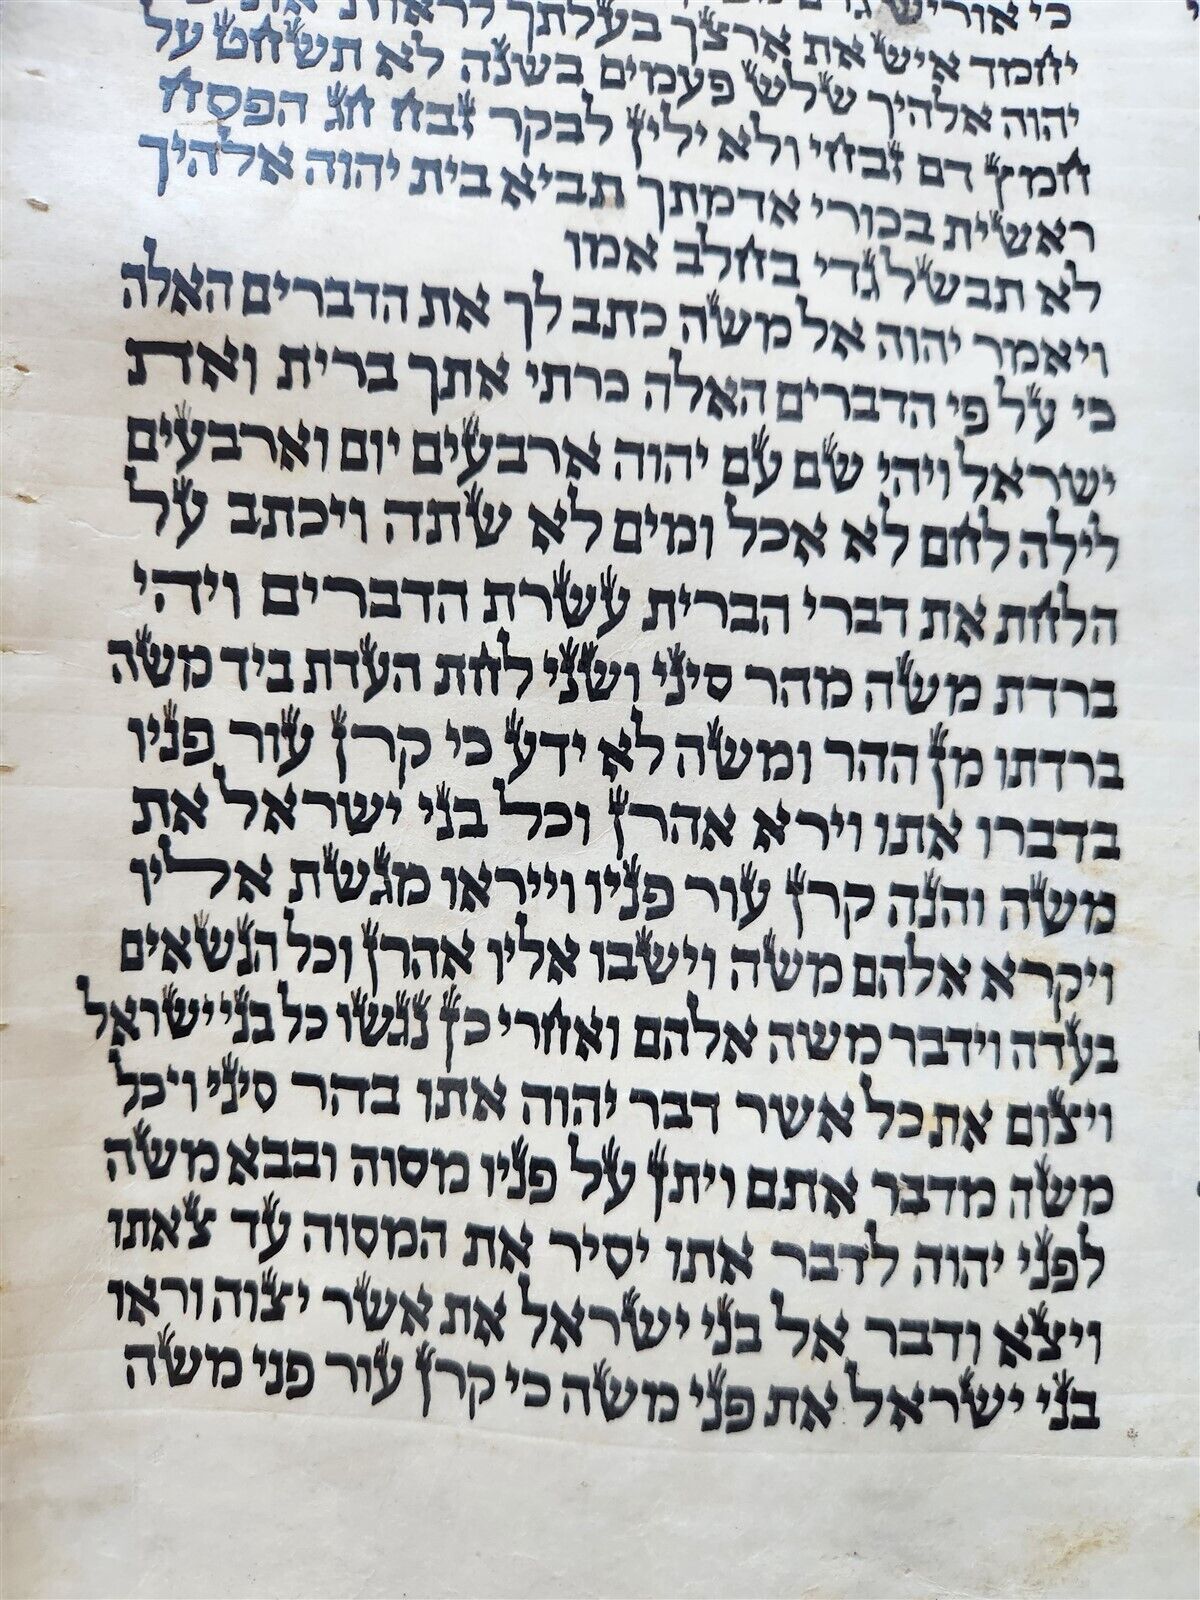 כי אוריש גוים
יחמד איש את ארצך בעלתך לראות את
יהוה אלהיך שלש פעמים בשנה לא תשחט על
חמץ דם זבחי ולא ילין לבקר זבח חג הפסח
ראשית בכורי אדמתך תביא בית יהוה אלהיך
לא תבשל גדי בחלב אמו
ויאמר יהוה אל משה כתב לך את הדברים האלה
כי על פי הדברים האלה כרתי אתך ברית ואת
ישראל ויהי שם עם יהוה ארבעים יום וארבעים
לילה לחם לא אכל ומים לא שתה ויכתב על
הלחת את דברי הברית עשרת הדברים ויהי
ברדת משה מהר סיני ושני לחת העדת ביד משה
ברדתו מן ההר ומשה לא ידע כי קרן עור פניו
בדברו אתו וירא אהרן וכל בני ישראל את
משה והנה קרן עור פניו וייראו מגשת אליו
ויקרא אלהם משה וישבו אליו אהרן וכל הנשאים
בעדה וידבר משה אלהם ואחרי כן נגשו כל בני ישראל
ויצום את כל אשר דבר יהוה אתו בהר סיני ויכל
משה מדבר אתם ויתן על פניו מסוה ובבא משה
לפני יהוה לדבר אתו יסיר את המסוה עד צאתו
ויצא ודבר אל בני ישראל את אשר יצוה וראו
בני ישראל את פני משה כי קרן עור פני משה